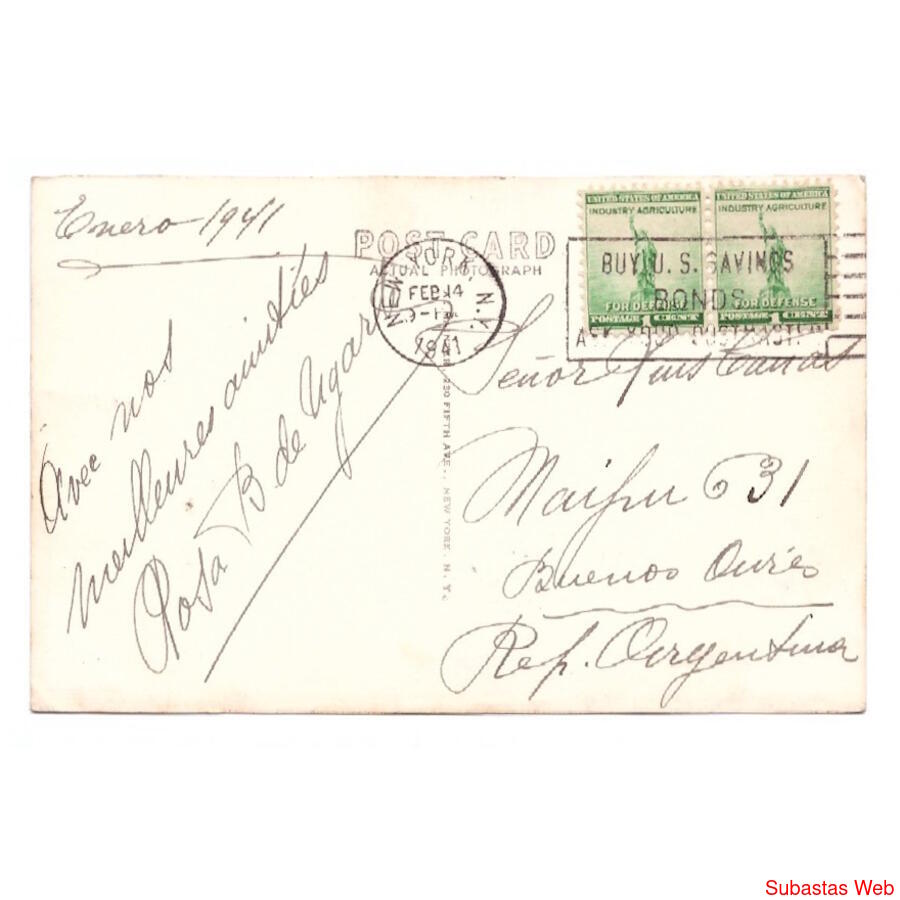 Enero 1941
POST CARD
ACTUAL PHOTOGRAPH
NEW YORK, N.Y.
FEB 14
1941
UNITED STATES OF AMERICA
INDUSTRY AGRICULTURE
FOR DEFENSE
POSTAGE 1 CENT
UNITED STATES OF AMERICA
INDUSTRY AGRICULTURE
FOR DEFENSE
POSTAGE 1 CENT
BUY U. S. SAVINGS
BONDS
ASK YOUR POSTMASTER
Avec nos
meilleures amitiés
Rosa B de Ugarte
230 FIFTH AVE., NEW YORK, N. Y.
Señor Luis Canas
Maipu 631
Buenos Aires
Rep. Argentina
Subastas Web